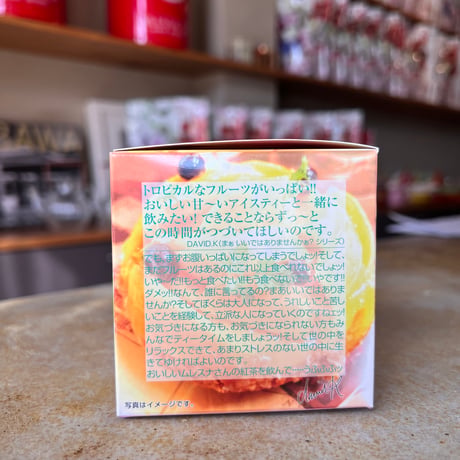 トロピカルなフルーツがいっぱい!!
おいしい甘〜いアイスティーと一緒に
飲みたい! できることならずっ〜と
この時間がつづいてほしいのです。
DAVID.K(まぁ いいではありませんかぁ? シリーズ)
でも、まずお腹いっぱいになってしまうでしょ!そして、
まだフルーツはあるのにこれ以上食べれないでしょッ!
いや〜た!!もっと食べたい!!もう食べない いやです!!
ダメッ!!なんて、誰に言ってるの?まあいいではありま
せんか?そしてぼくらは大人になって、うれしいこと苦し
いことを経験して、立派な人になっていくのですねェッ!
お気づきになる方も、お気づきになられない方もみ
んなでティータイムをしましょうッ!そして世の中を
リラックスできて、あまりストレスのない世の中に生
きてゆければよいのです。
おいしいムレスナさんの紅茶を飲んで
David.K
写真はイメージです。